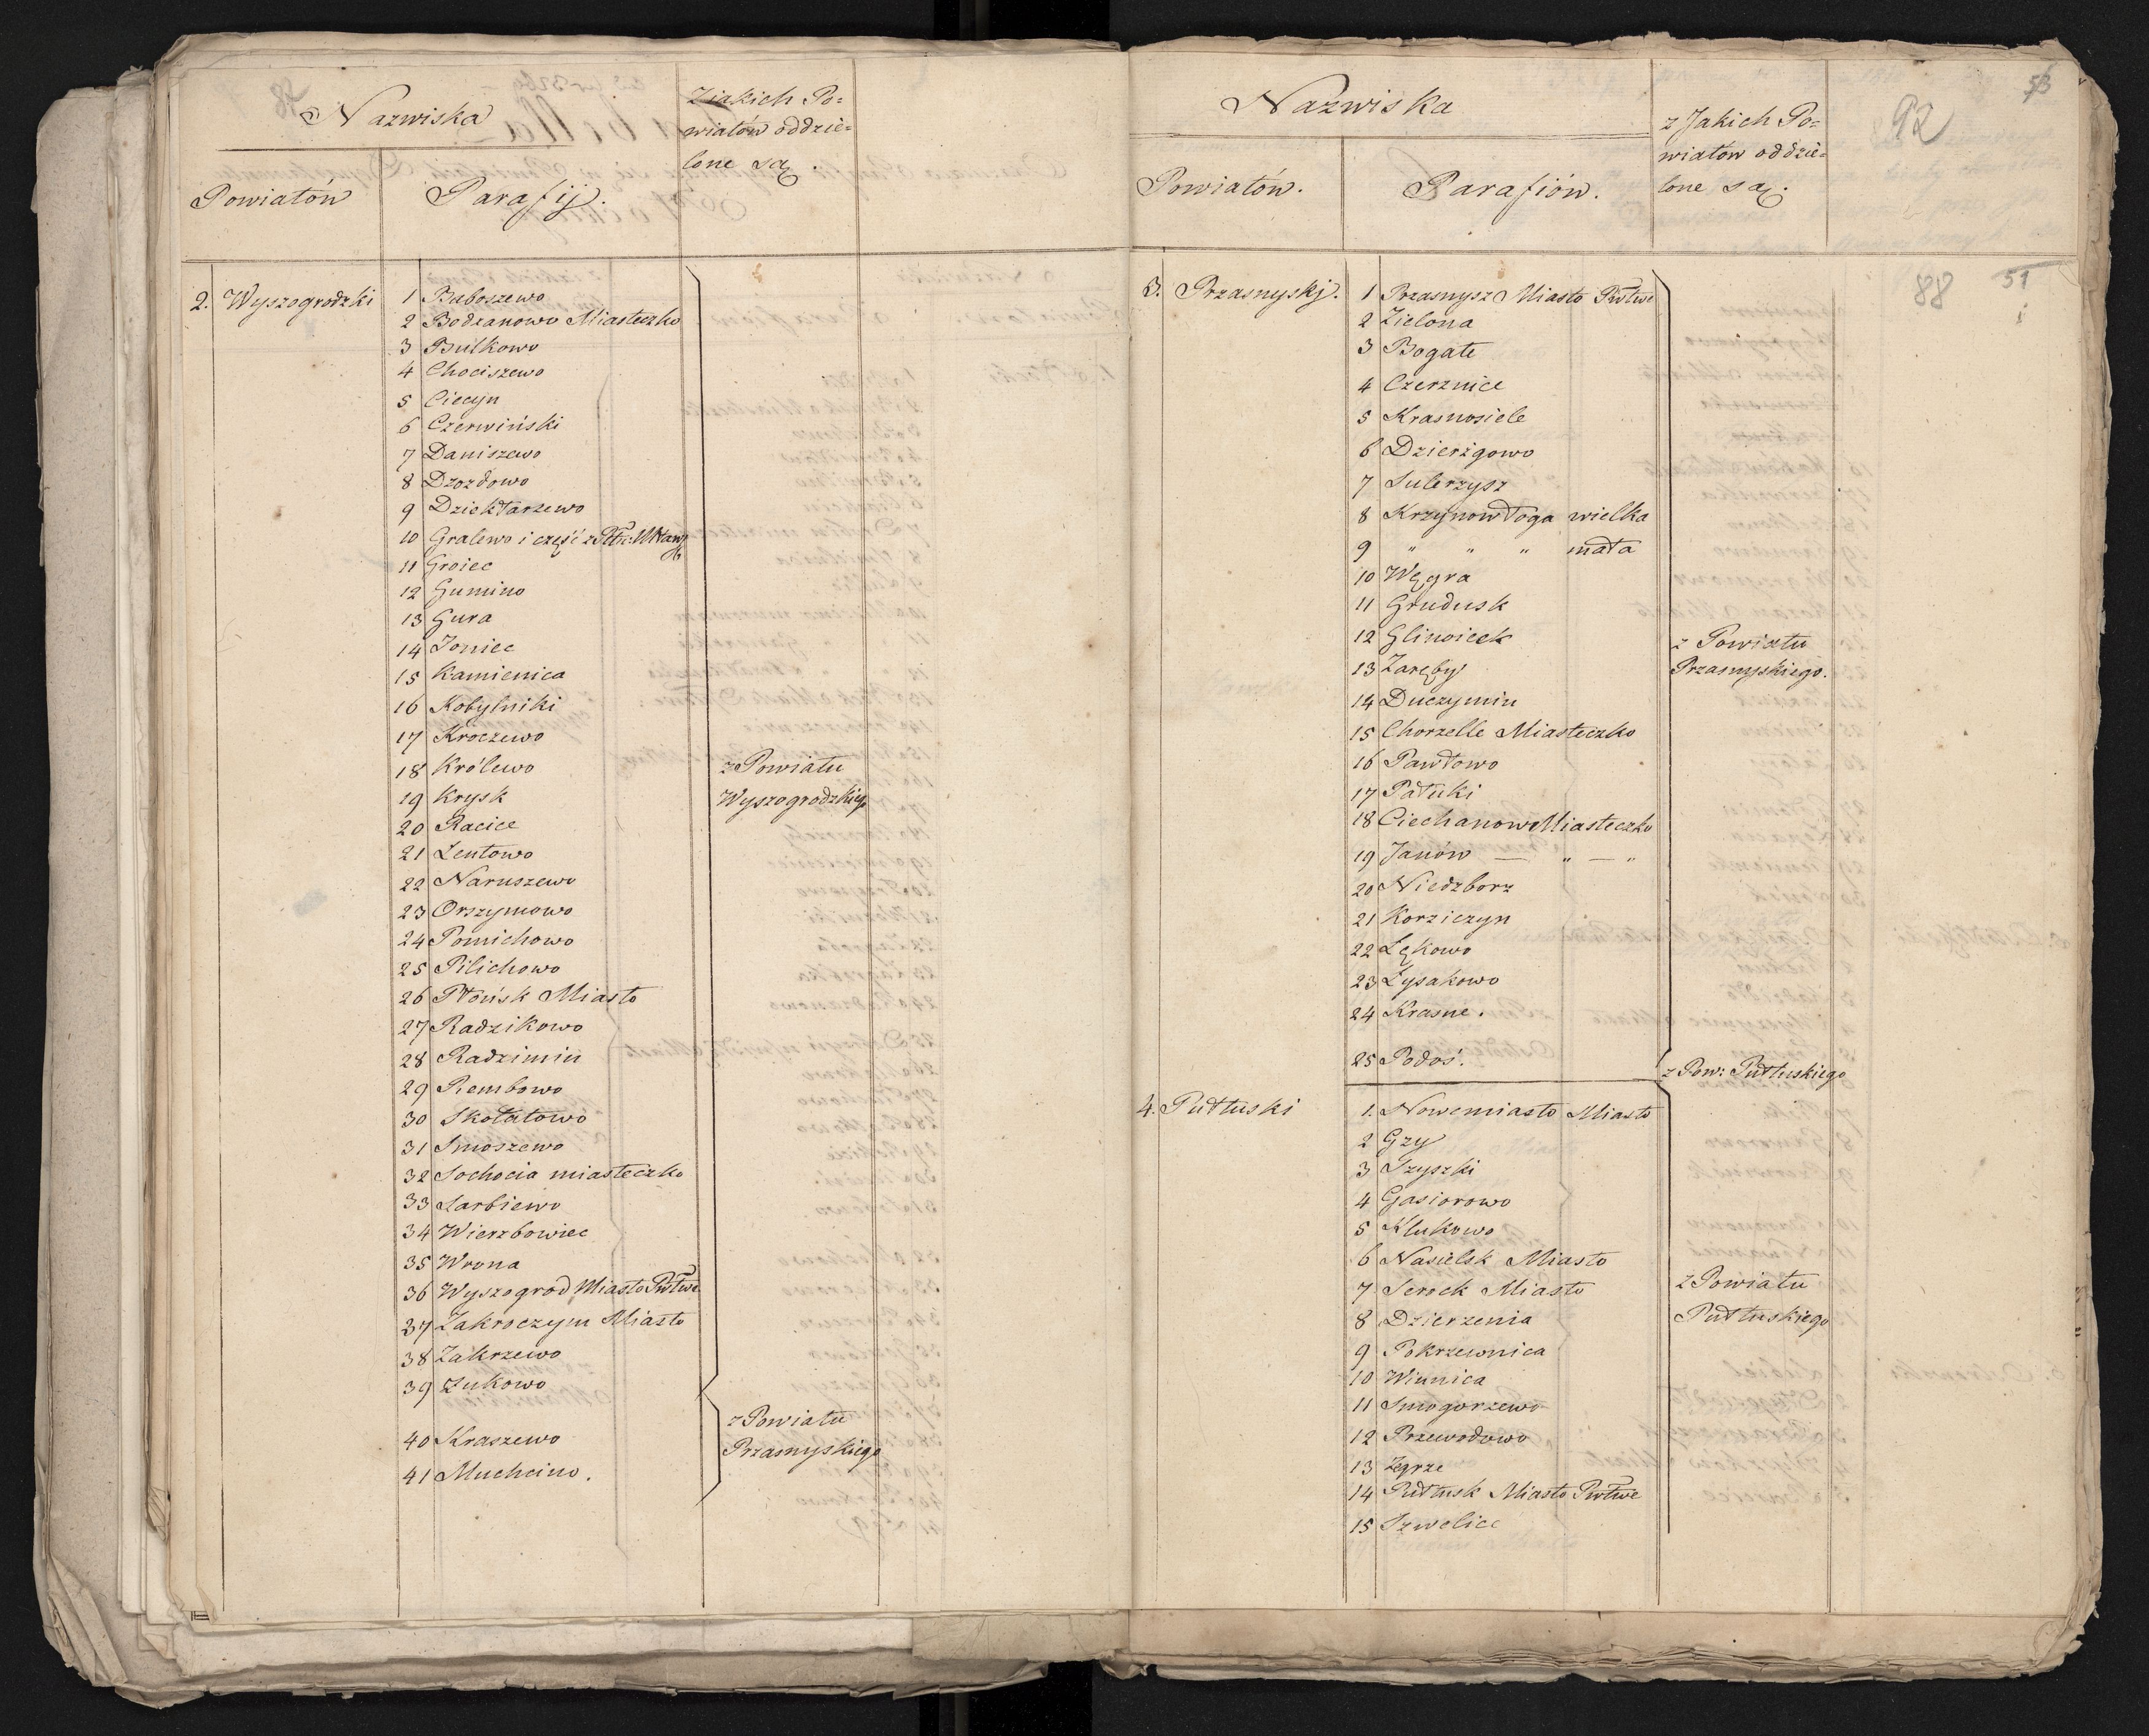 Nazwiska
Ziakich Po=
wiatów oddzie=
lone są.
Powiatów
Parafij.
2. Wyszogrodzki
1 Baboszewo
2 Bodzanowo Miasteczko
3 Bulkowo
4 Chociszewo
5 Ciecyn
6 Czerwiński
7 Daniszewo
8 Drozdowo
9 Dziektarzewo
10 Gralewo i część z
11 Groiec
12 Gumino
13 Gura
14 Joniec
15 Kamienica
16 Kobylniki
17 Kroczewo
18 Królewo
19 Krysk
20 Racice
21 Lentowo
22 Naruszewo
23 Orszymowo
24 Pomichowo
25 Pilichowo
26 Płońsk Miasto
27 Radzikowo
28 Radzimin
29 Rembowo
30 Skołatowo
31 Smoszewo
32 Sochocia miasteczko
33 Sarbiewo
34 Wierzbowiec
35 Wrona
36 Wyszogród Miasto Pwtwe
37 Zakroczym Miasto
38 Zakrzewo
39 Żukowo
z Powiatu
Wyszogrodzkiego
40 Kraszewo
41 Muchcino.
z Powiatu
Przasnyskiego
53
92
Nazwiska
z Jakich Po=
wiatów oddzie=
lone są.
Powiatów.
Parafiów.
88
51
3. Przasnyskj.
1 Przasnysz Miasto Pwtwe
2 Zielona
3 Bogate
4 Czernice
5 Krasnosiele
6 Dzierżgowo
7 Sulerzysz
8 Krzynowłoga wielka
9 " " " mała
10 Węgra
11 Grudusk
12 Glinoicek
13 Zaręby
14 Duczymin
15 Chorzelle Miasteczko
16 Pawłowo
17 Pałuki
18 Ciechanow Miasteczko
19 Janów — " — "
20 Niedzborz
21 Korziczyn
22 Lękowo
23 Łysakowo
24 Krasne.
z Powiatu
Przasnyskiego.
25 Podoś.
z Pow: Pułtuskiego
4. Pułtuski
1. Nowemiasto Miasto
2 Gzy
3 Szyszki
4 Gasiorowo
5 Klukowo
6 Nasielsk Miasto
7 Serock Miasto
8 Dzierzenia
9 Pokrzewnica
10 Winnica
11 Smogorzewo
12 Przewodowo
13 Zegrze
14 Pułtusk Miasto Pwtwe
15 Szwelice
z Powiatu
Pułtuskiego